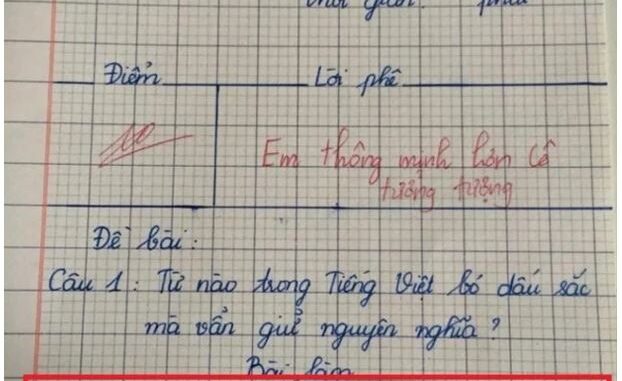 Điểm Lời phê
10 Em thông minh hơn Cô
tưởng tượng
Đề bài:
Câu 1: Từ nào trong Tiếng Việt bỏ dấu sắc
mà vẫn giữ nguyên nghĩa?
Bài làm